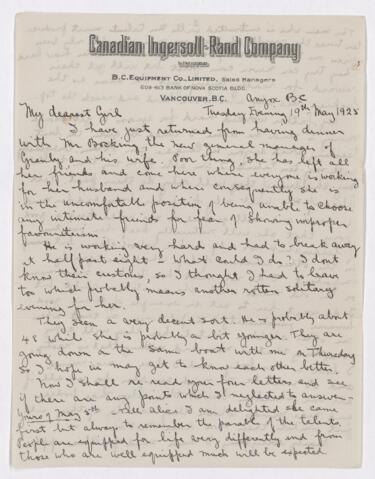 Canadian Ingersoll-Rand Company
LIMITED
B.C. EQUIPMENT CO., LIMITED, Sales Managers
606-613 BANK OF NOVA SCOTIA BLDG.
VANCOUVER, B.C. Anyox BC
My dearest Girl Tuesday Evening 19th May 1925
I have just returned from having dinner
with Mr Bocking, the new general manager of
Granby and his wife. Poor thing, she has left all
her friends and come here where everyone is working
for her husband and where consequently she is
in the uncomfortable position of being unable to choose
any intimate friends for fear of showing improper
favouritism.
He is working very hard and had to break away
at half past eight - what could I do? I don't
know their customs, so I thought I had to leave
too which probably means another rotten solitary
evening for her.
They seem a very decent sort. He is probably about
48 while she is probably a bit younger. They are
going down on the same boat with me on Thursday
so I hope we may get to know each other better.
Now I shall re read your four letters and see
if there are any points which I neglected to answer -
Yours of May 5th - Re Alice I am delighted she came
first but always to remember the parable of the talents.
People are equipped for life very differently and from
those who are well equipped much will be expected